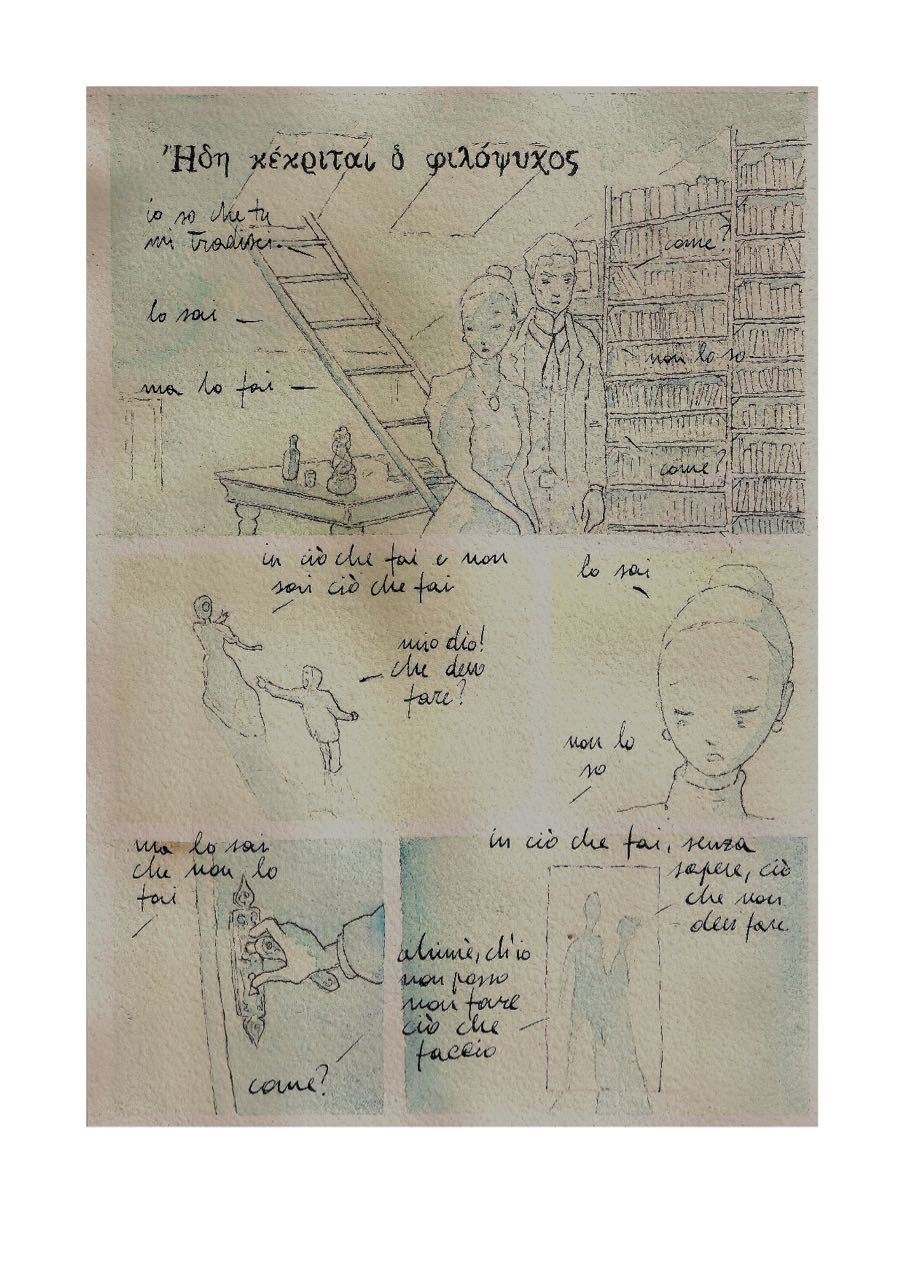 Ἤδη κέκριται ὁ φιλόψυχος
io so che tu
mi tradisci.
come?
lo sai
non lo so
ma lo fai
come?
in ciò che fai e non
sai ciò che fai
mio dio!
che devo
fare?
lo sai
non lo
so
ma lo sai
che non lo
fai
come?
in ciò che fai, senza
sapere, ciò
che non
devi fare
ahimè, ch'io
non posso
non fare
ciò che
faccio